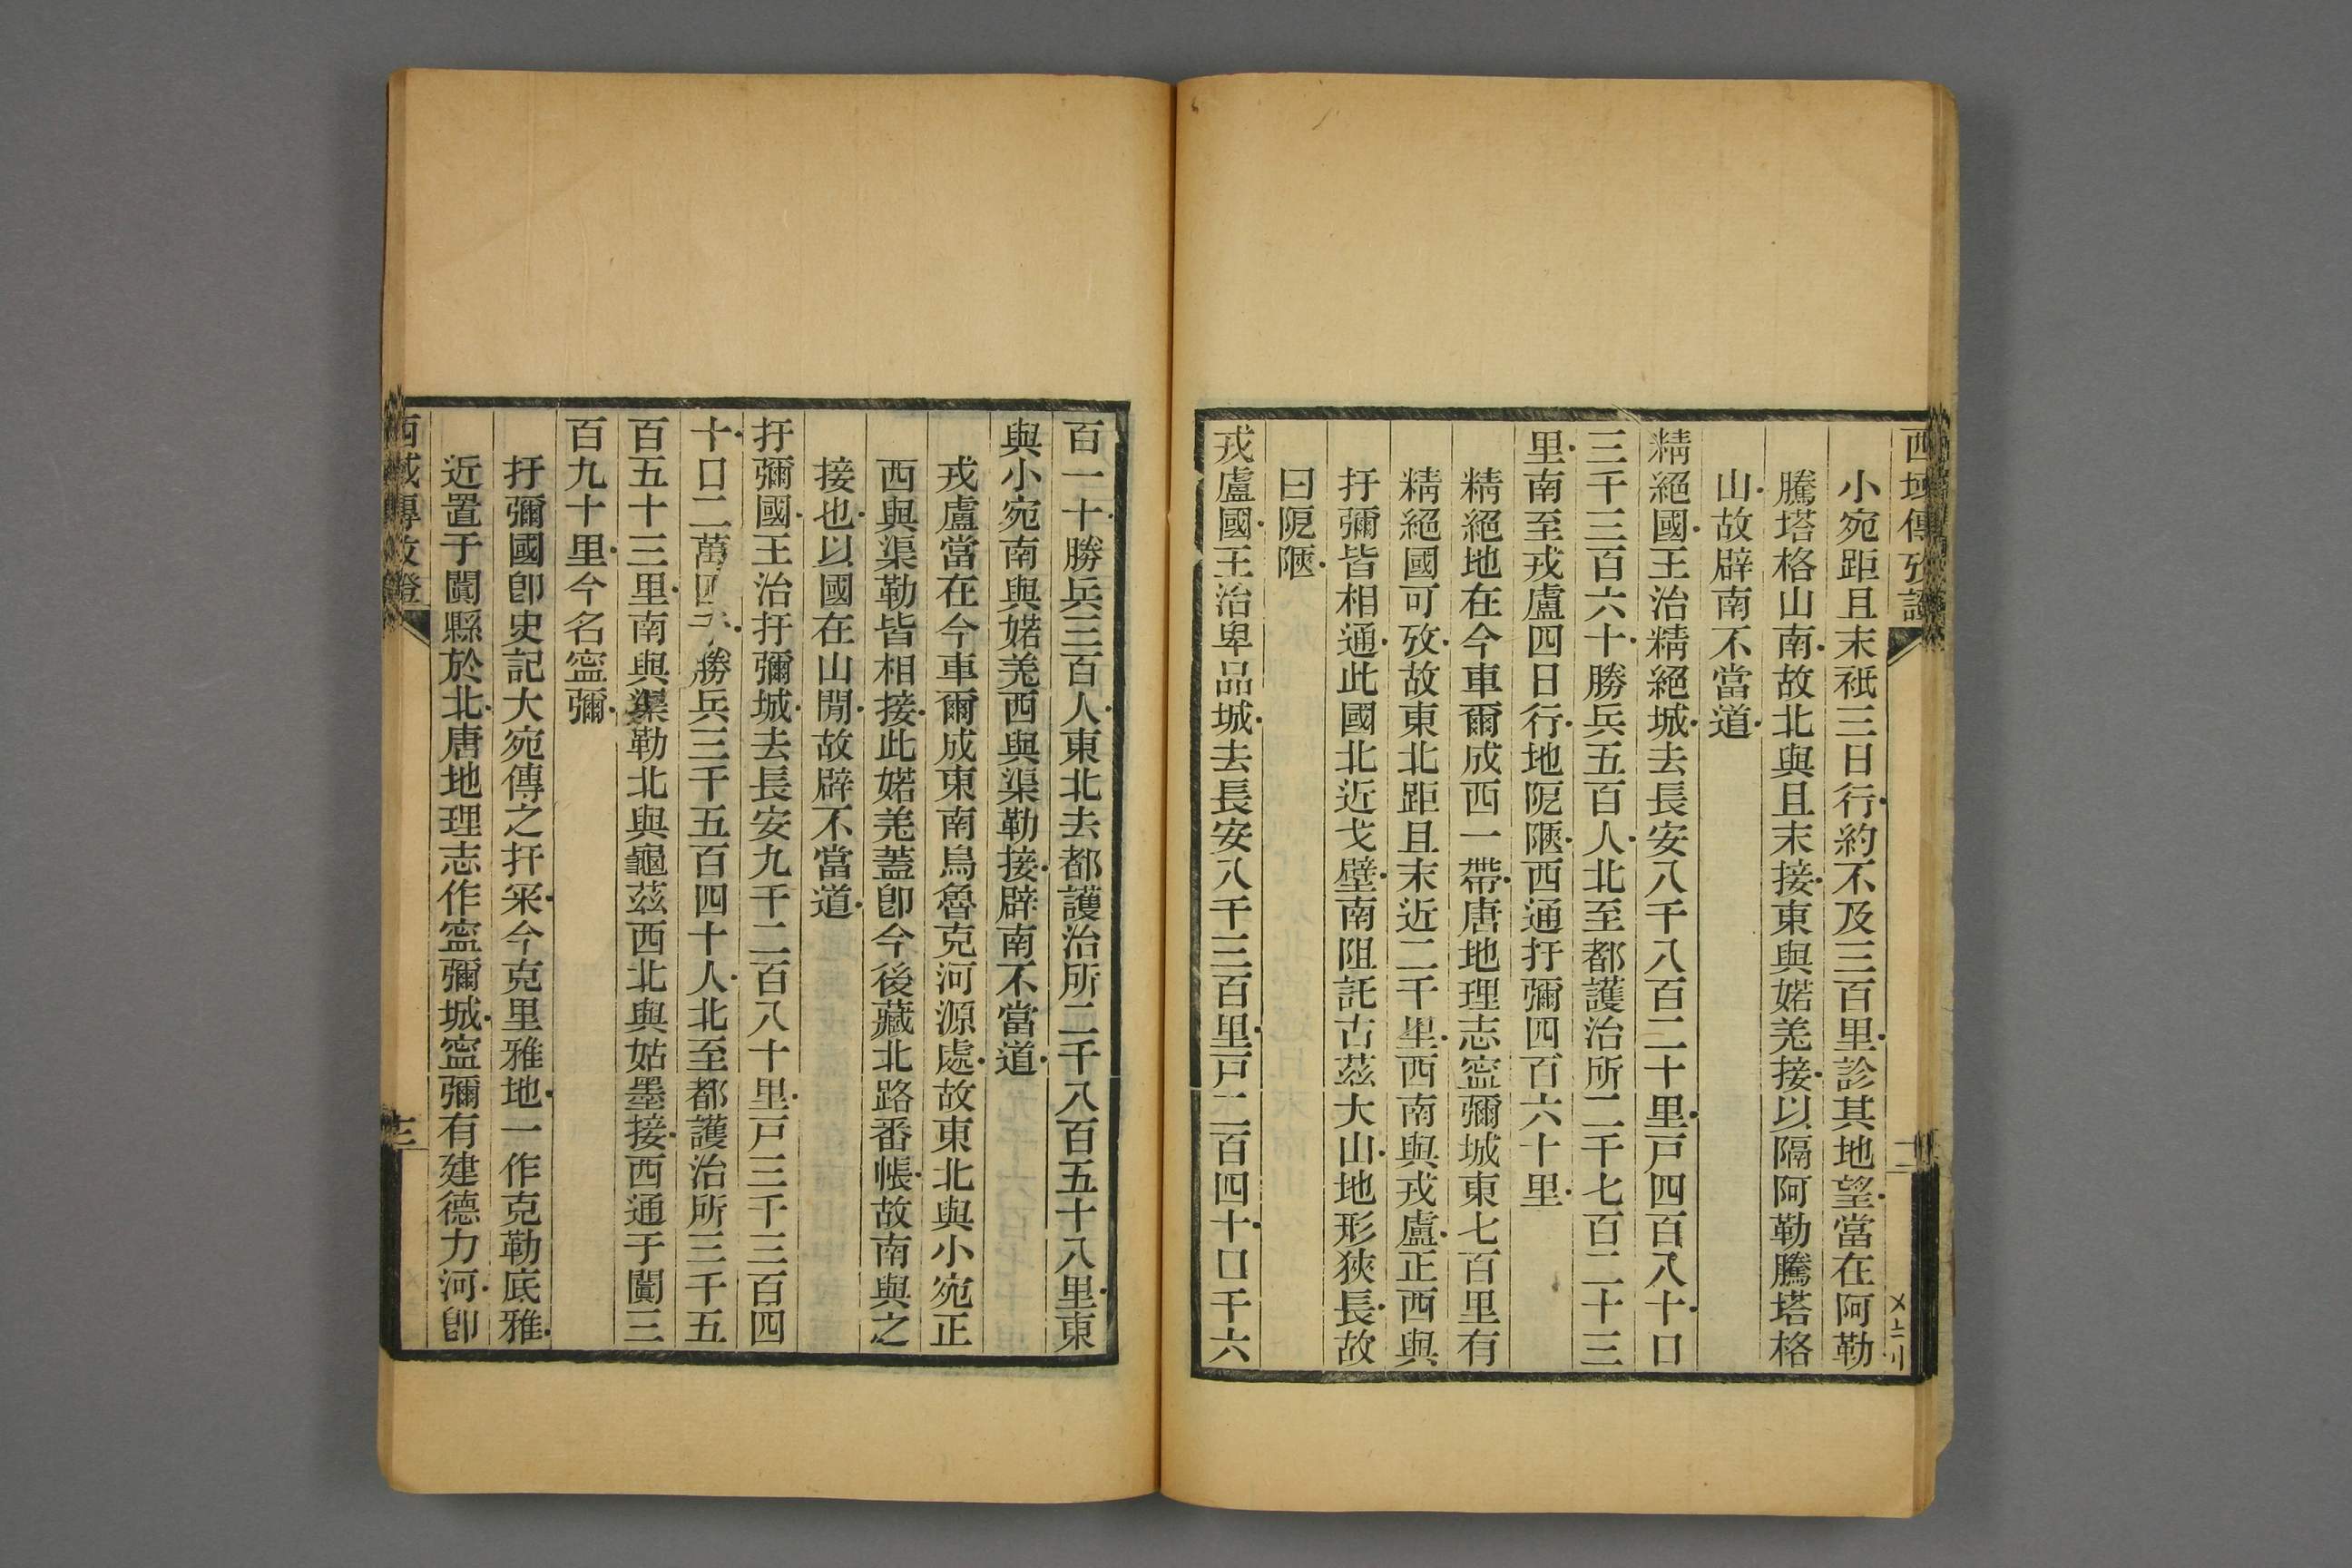 西域傳攷證
小宛距且末祗三日行約不及三百里診其地望當在阿勒
騰塔格山南故北與且末接東與婼羌接以隔阿勒騰塔格
山故辟南不當道
精絕國王治精絕城去長安八千八百二十里戸四百八十口
三千三百六十勝兵五百人北至都護治所二千七百二十三
里南至戎盧四日行地阨陿西通扜彌四百六十里
精絕地在今車爾成西一帶唐地理志寍彌城東七百里有
精絕國可攷故東北距且末近二千里西南與戎盧正西與
扜彌皆相通此國北近戈壁南阻託古茲大山地形狹長故
曰阨陿
戎盧國王治卑品城去長安八千三百里戸二百四十口千六
百一十勝兵三百人東北去都護治所二千八百五十八里東
與小宛南與婼羌西與渠勒接辟南不當道
戎盧當在今車爾成東南烏魯克河源處故東北與小宛正
西與渠勒皆相接此婼羌蓋卽今後藏北路番帳故南與之
接也以國在山閒故辟不當道
扜彌國王治扜彌城去長安九千二百八十里戸三千三百四
十口二萬四十勝兵三千五百四十人北至都護治所三千五
百五十三里南與渠勒北與龜茲西北與姑墨接西通于闐三
百九十里今名寍彌
扜彌國卽史記大宛傳之扞罙今克里雅地一作克勒底雅
近置于闐縣於北唐地理志作寍彌城寍彌有建德力河卽
西域傳攷證
三